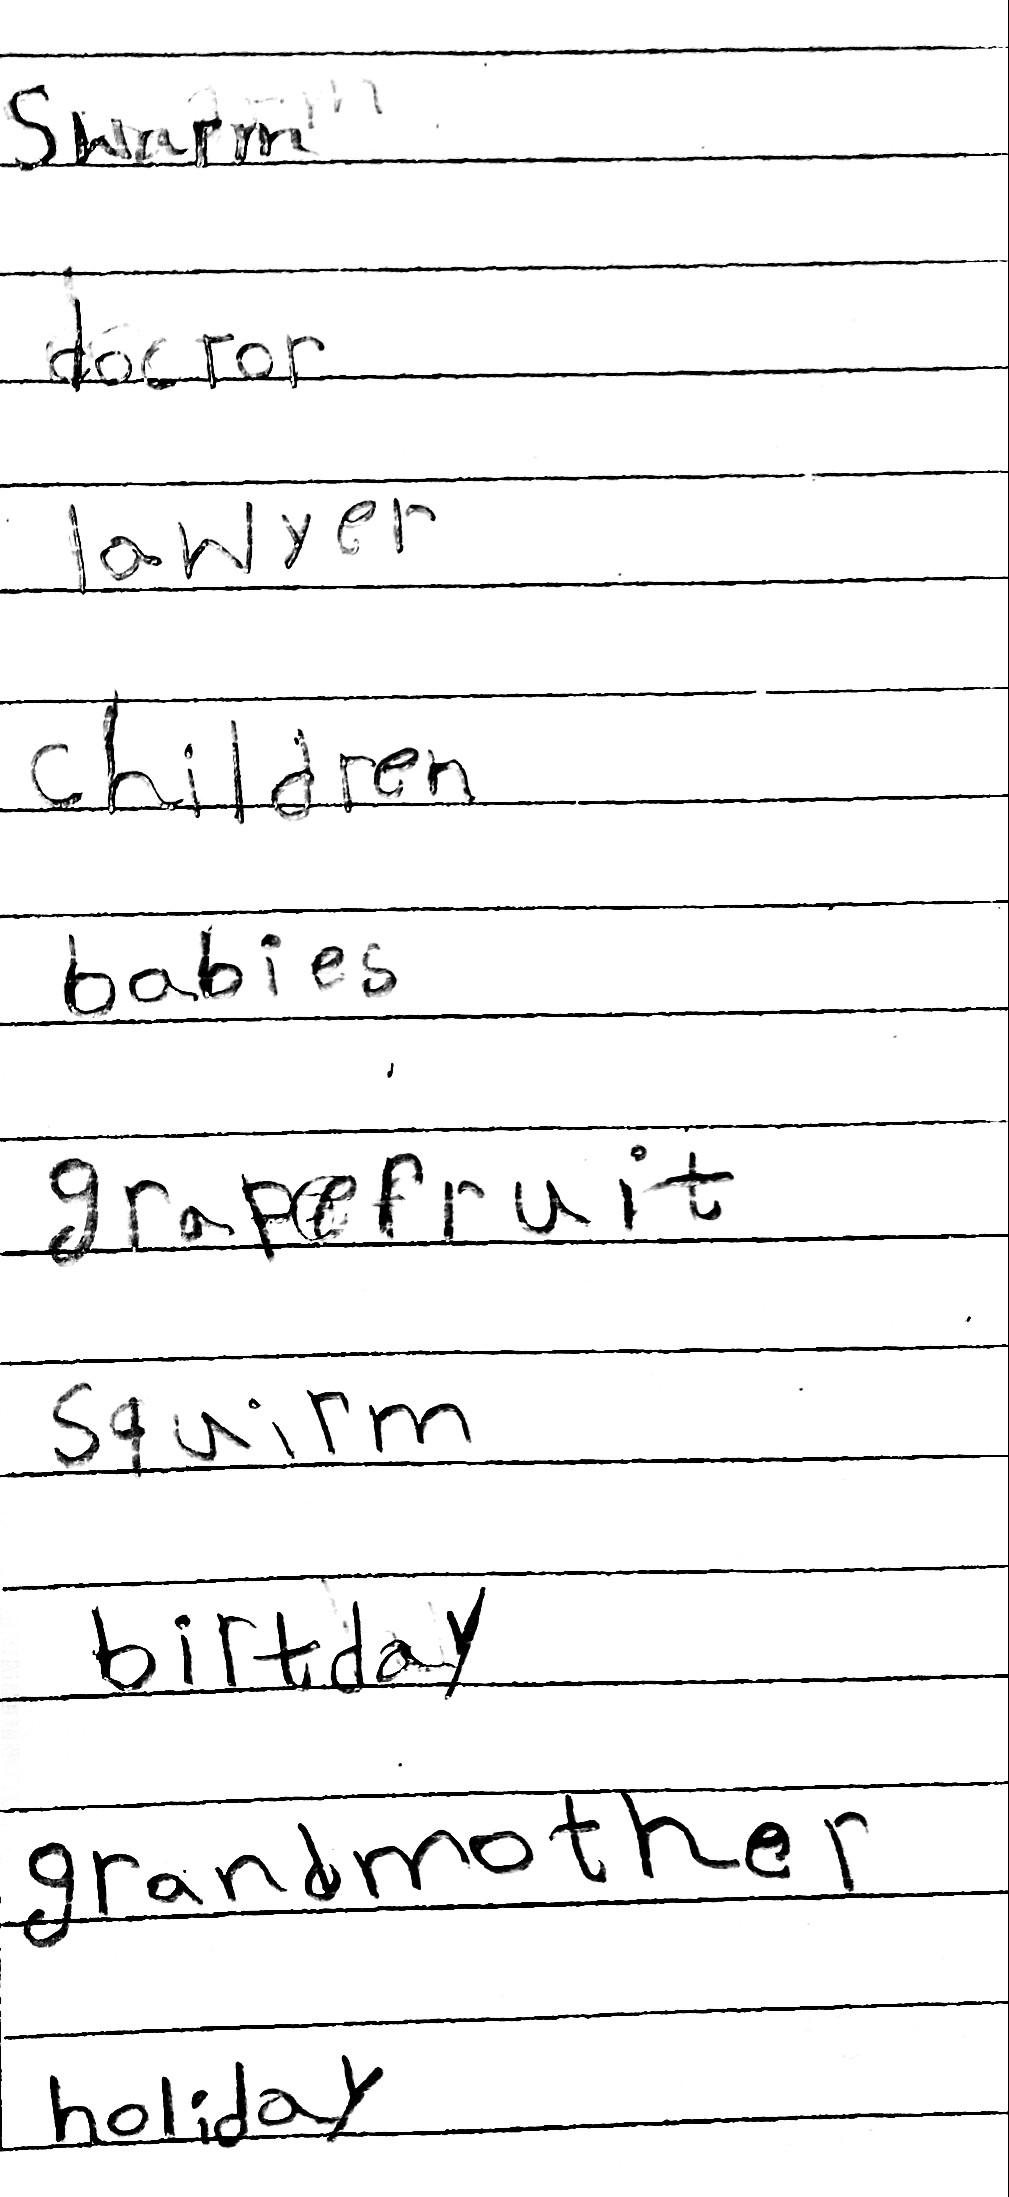 Swarm
doctor
lawyer
children
babies
grapefruit
squirm
birtday
grandmother
holiday